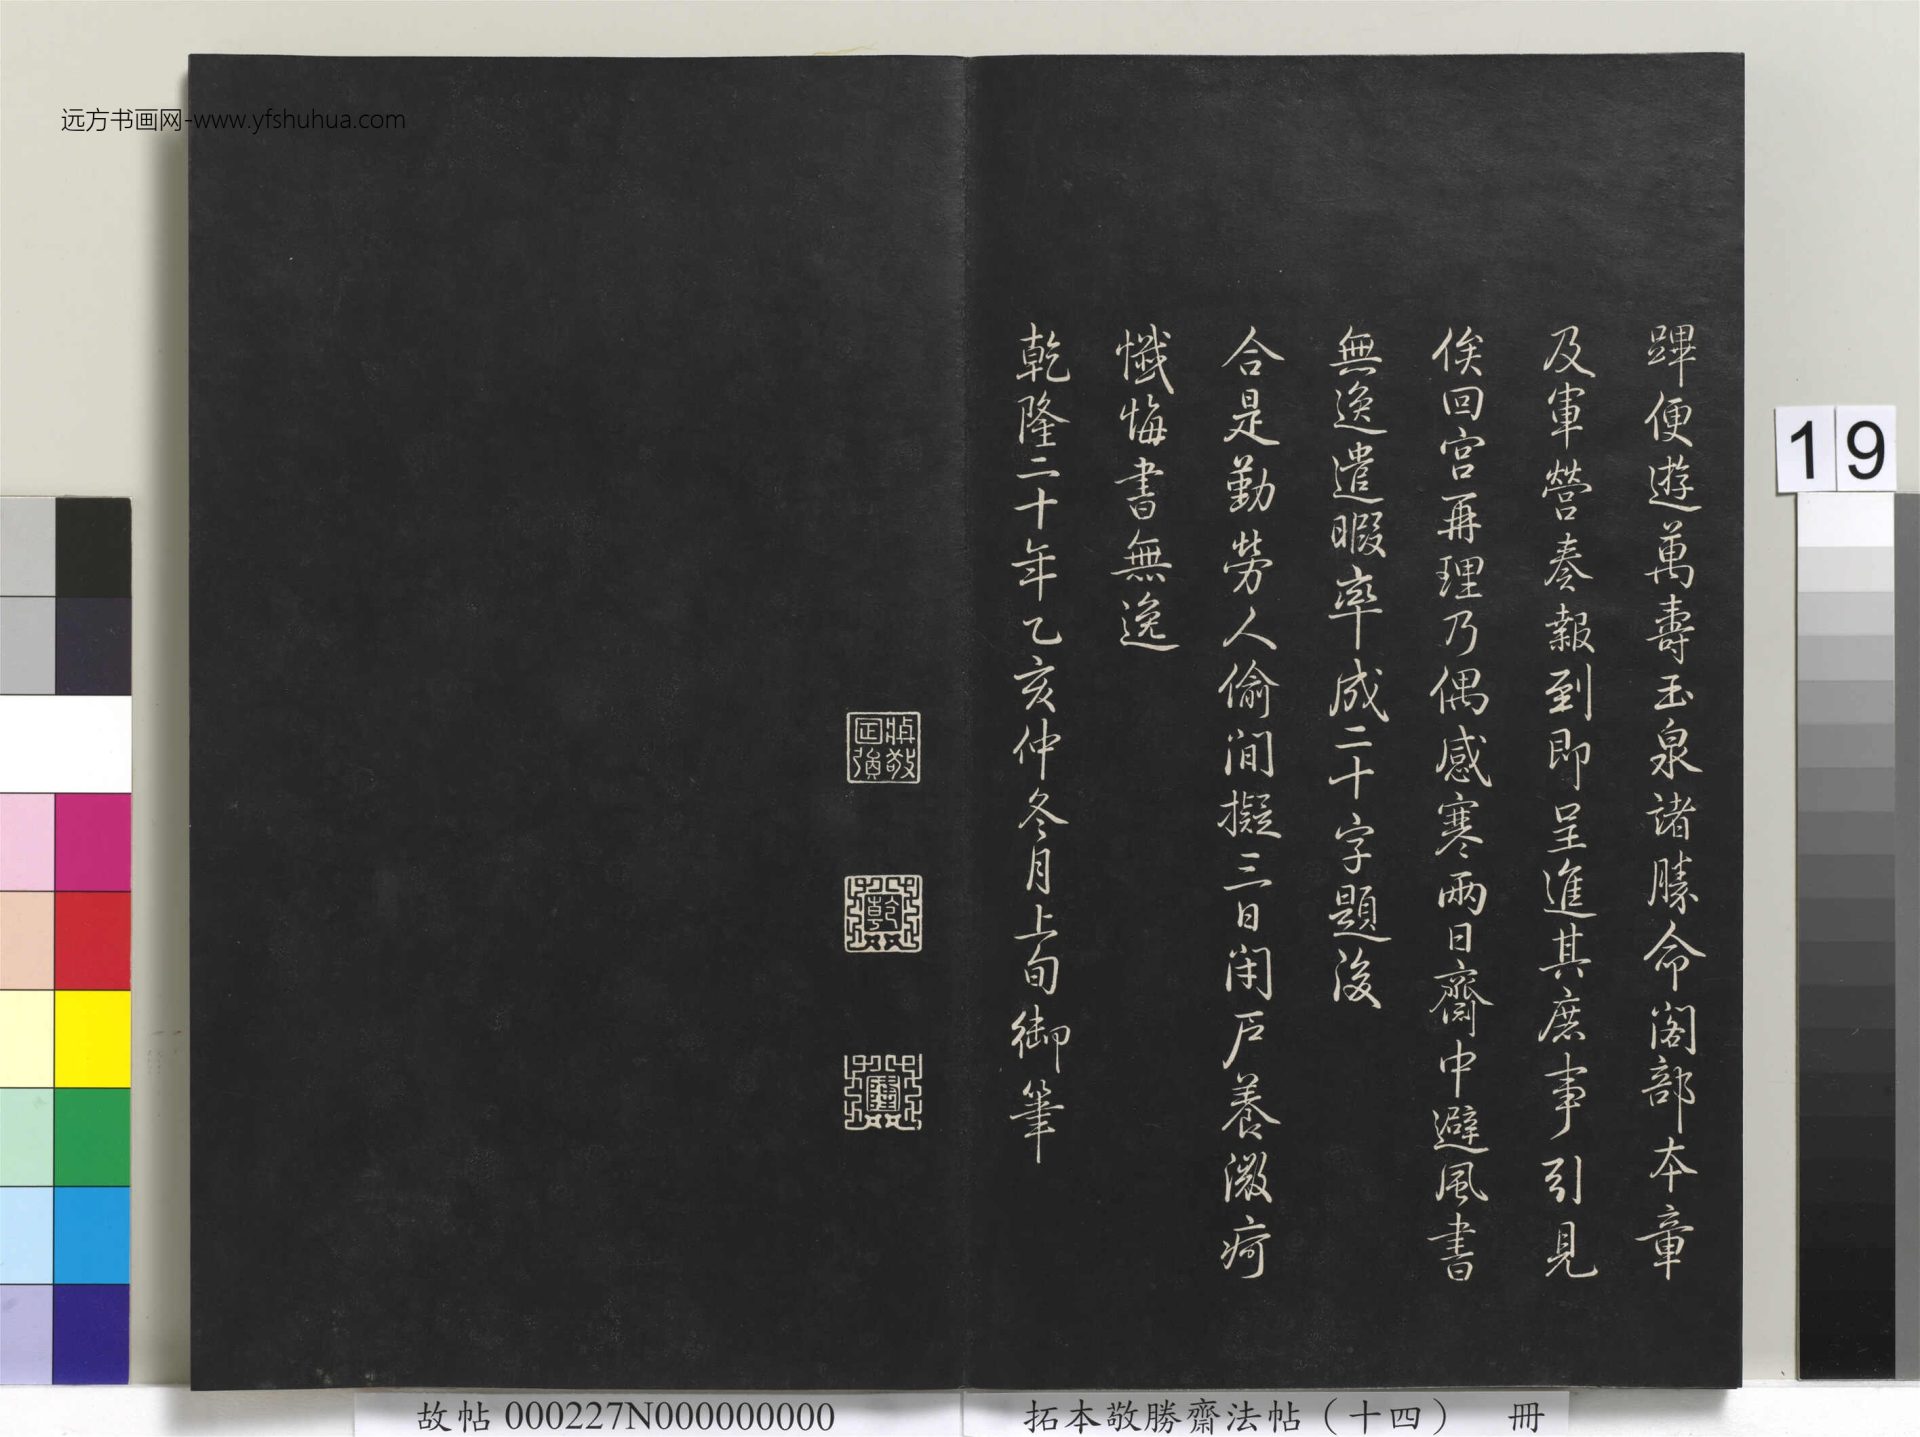 远方书画网-www.yfshuhua.com
蹕便遊萬壽玉泉諸勝命閣部本章
及軍營奏報到即呈進其庶事引見
俟回宮再理乃偶感寒兩日齋中避風書
無逸遣暇率成二十字題後
合是勤勞人偷閒擬三日閉戶養微疴
懺悔書無逸
乾隆二十年乙亥仲冬月上旬御筆
乾
隆
19
故帖 000227N000000000
拓本敬勝齋法帖（十四） 冊